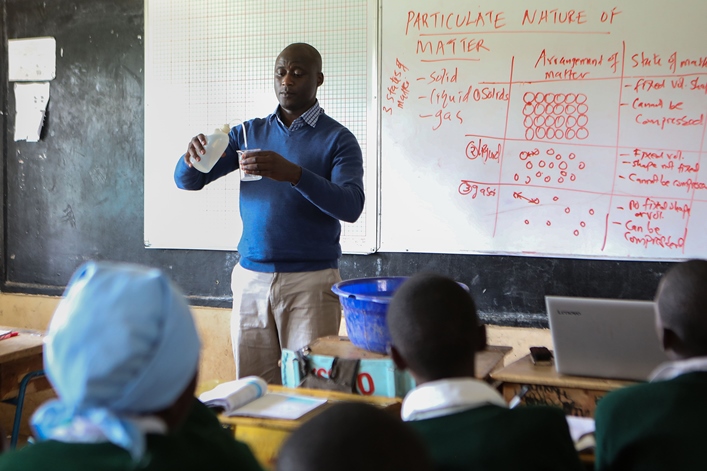 PARTICULATE NATURE OF
MATTER
3 states of matter
- solid
- liquid
- gas
Arrangement of matter
State of matt
① Solids
- fixed vol. shap
- Cannot be
Compressed
② liquid
- fixed vol.
- shape not fixed
- Cannot be compress
③ gass
- No fixed shape
or vol.
- Can be
Compressed
lenovo